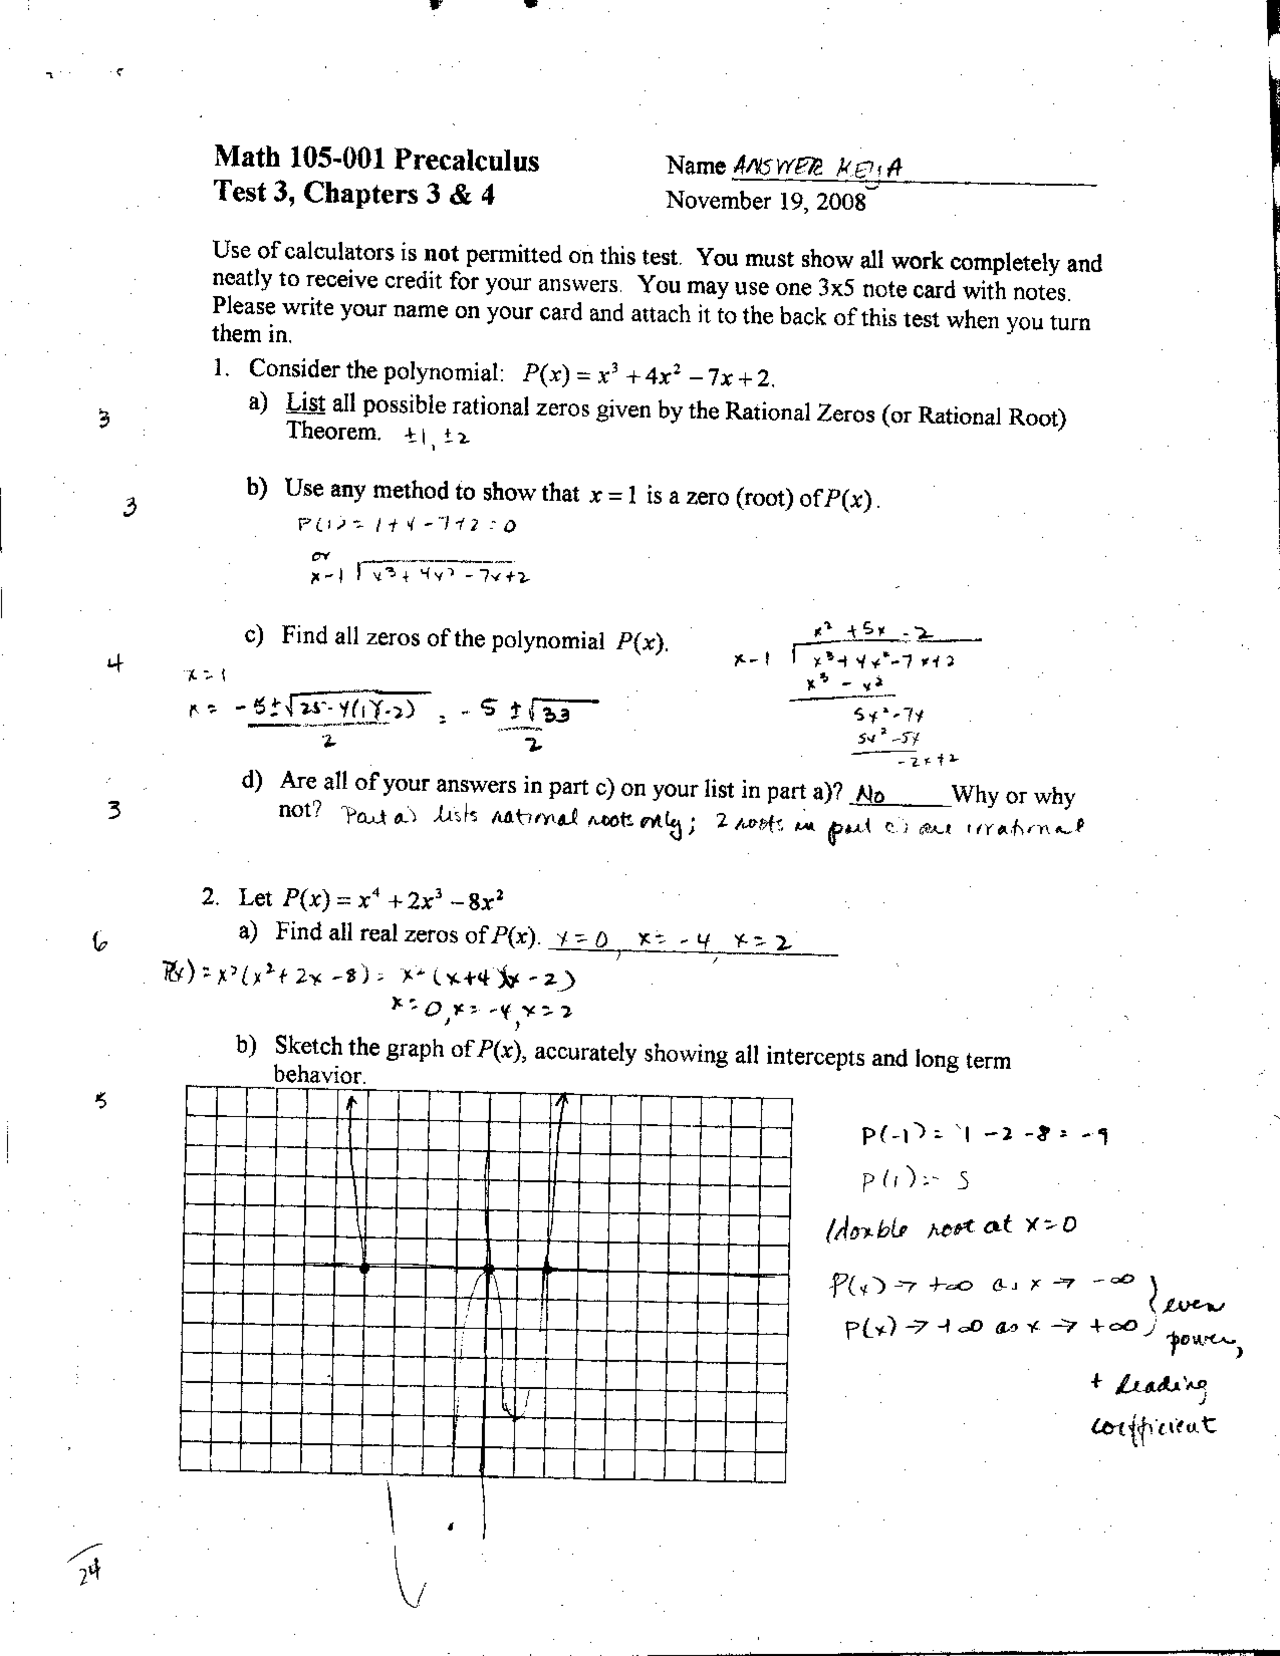 Math 105-001 Precalculus
Name ANSWER KEY A
Test 3, Chapters 3 & 4
November 19, 2008
Use of calculators is not permitted on this test. You must show all work completely and
neatly to receive credit for your answers. You may use one 3x5 note card with notes.
Please write your name on your card and attach it to the back of this test when you turn
them in.
1. Consider the polynomial: P(x) = x³ + 4x² − 7x + 2.
3 a) List all possible rational zeros given by the Rational Zeros (or Rational Root)
Theorem. ±1, ±2
3 b) Use any method to show that x = 1 is a zero (root) of P(x).
P(1) = 1 + 4 − 7 + 2 = 0
or
x−1 ⟌ x³ + 4x² − 7x + 2
4 c) Find all zeros of the polynomial P(x).
x = 1
x = (−5 ± √(25 − 4(1)(−2))) / 2 = (−5 ± √33) / 2
x² + 5x − 2
x−1 ⟌ x³ + 4x² − 7x + 2
x³ − x²
5x² − 7x
5x² − 5x
−2x + 2
3 d) Are all of your answers in part c) on your list in part a)? No Why or why
not? Part a) lists rational roots only; 2 roots in part c) are irrational
2. Let P(x) = x⁴ + 2x³ − 8x²
6 a) Find all real zeros of P(x). x = 0, x = −4, x = 2
P(x) = x²(x² + 2x − 8) = x²(x+4)(x−2)
x = 0, x = −4, x = 2
b) Sketch the graph of P(x), accurately showing all intercepts and long term
behavior.
5
P(−1) = 1 − 2 − 8 = −9
P(1) = −5
double root at x = 0
P(x) → +∞ as x → −∞
P(x) → +∞ as x → +∞
even
power,
+ leading
coefficient
24